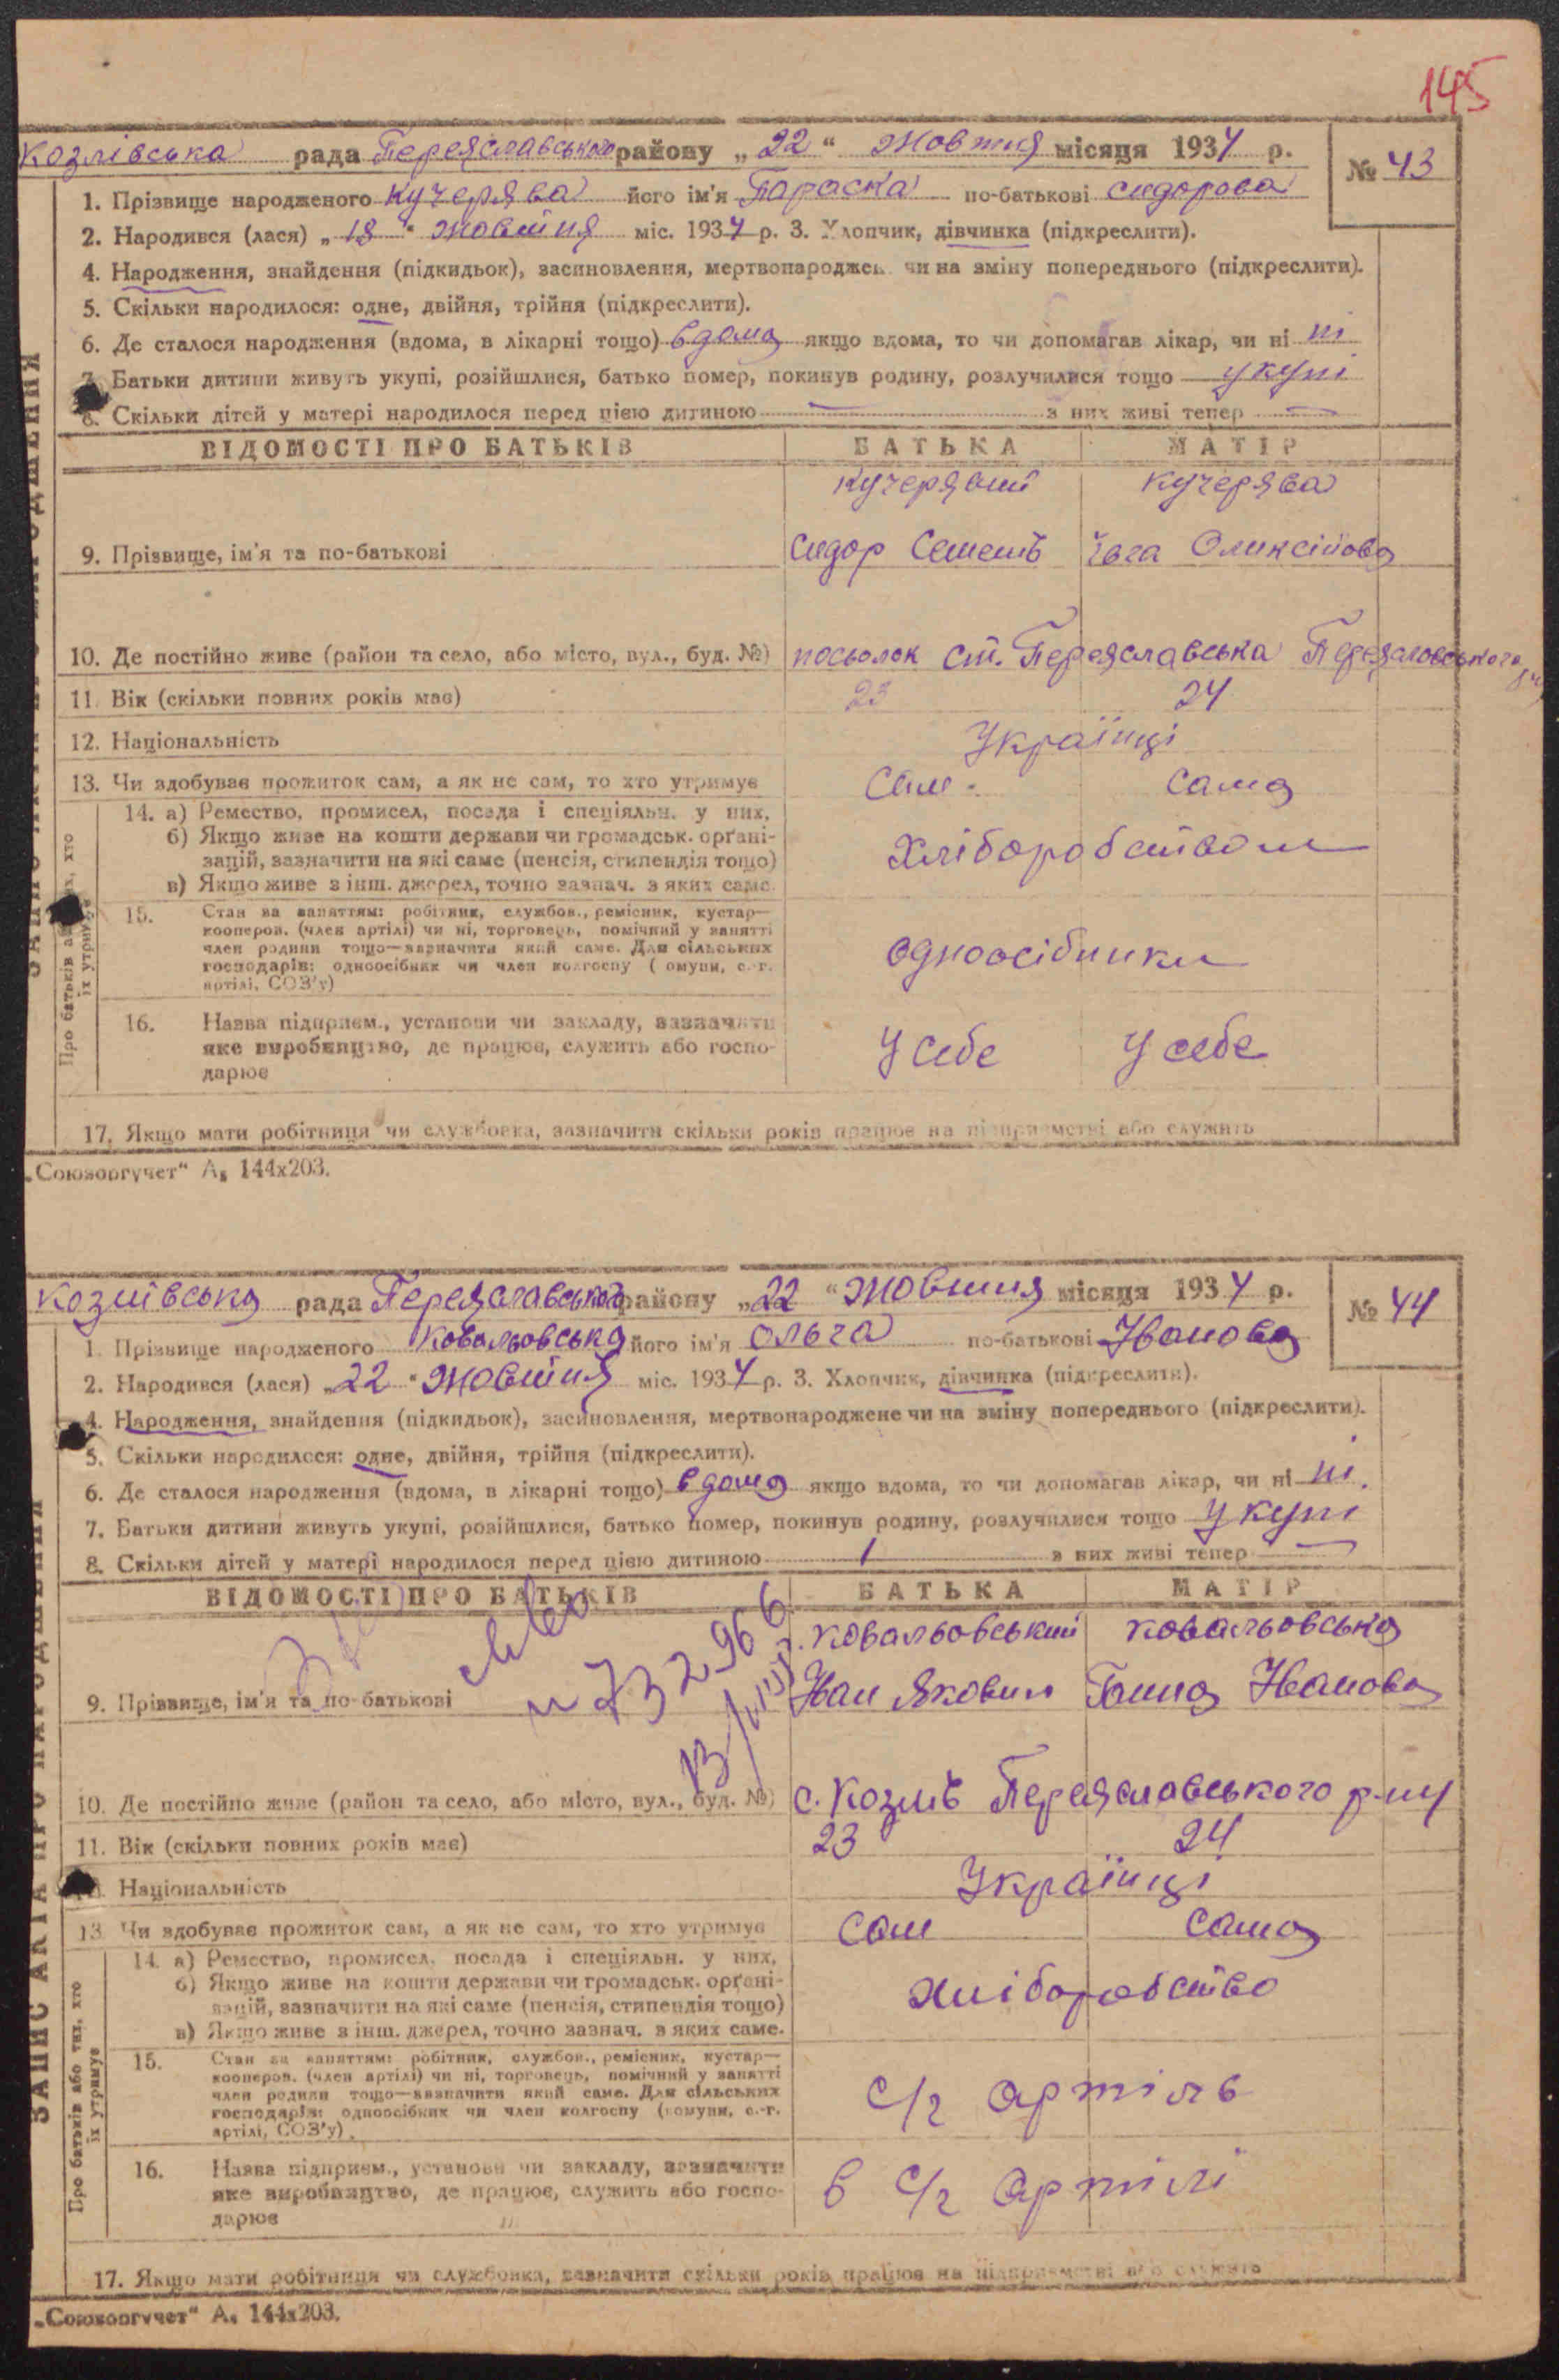 145
Козлівська рада Переяславського району „22“ Жовтня місяця 1934 р.
№ 43
1. Прізвище народженого Кучерява його ім'я Параска по-батькові Сидорова
2. Народився (лася) „18“ жовтня міс. 1934 р. 3. Хлопчик, дівчинка (підкреслити).
4. Народження, знайдення (підкидьок), засиновлення, мертвонароджен. чи на зміну попереднього (підкреслити).
5. Скільки народилося: одне, двійня, трійня (підкреслити).
6. Де сталося народження (вдома, в лікарні тощо) вдома якщо вдома, то чи допомагав лікар, чи ні ні
7. Батьки дитини живуть укупі, розійшлися, батько помер, покинув родину, розлучилися тощо укупі
8. Скільки дітей у матері народилося перед цією дитиною — з них живі тепер —
ВІДОМОСТІ ПРО БАТЬКІВ БАТЬКА МАТІР
Кучерявий Кучерява
9. Прізвище, ім'я та по-батькові Сидор Семенів Ївга Олексійова
10. Де постійно живе (район та село, або місто, вул., буд. №) посьолок ст. Переяславська Переяславського
11. Вік (скільки повних років має) 23 24
12. Національність Українці
13. Чи здобуває прожиток сам, а як не сам, то хто утримує Сам. Сама
Про батьків або тих, хто їх утримує
14. а) Ремество, промисел, посада і спеціяльн. у них,
б) Якщо живе на кошти держави чи громадськ. орґані-
зацій, зазначити на які саме (пенсія, стипендія тощо)
в) Якщо живе з інш. джерел, точно зазнач. з яких саме.
Хліборобством
15. Стан за заняттям: робітник, службов., ремісник, кустар—
кооперов. (член артілі) чи ні, торговець, помічний у занятті
член родини тощо—зазначити який саме. Для сільських
господарів: одноосібник чи член колгоспу ( омуни, с.-г.
артілі, СОЗ'у)
одноосібники
16. Назва підприєм., установи чи закладу, зазначити
яке виробництво, де працює, служить або госпо-
дарює
У себе У себе
17. Якщо мати робітниця чи службовка, зазначити скільки років працює на підприємстві або служить
„Союзоргучет“ А₅ 144х203.
Козлівська рада Переяславський району „22“ Жовтня місяця 1934 р.
№ 44
1. Прізвище народженого Ковальовська його ім'я Ольга по-батькові Іванова
2. Народився (лася) „22“ Жовтня міс. 1934 р. 3. Хлопчик, дівчинка (підкреслити).
4. Народження, знайдення (підкидьок), засиновлення, мертвонароджене чи на зміну попереднього (підкреслити).
5. Скільки народилося: одне, двійня, трійня (підкреслити).
6. Де сталося народження (вдома, в лікарні тощо) вдома якщо вдома, то чи допомагав лікар, чи ні ні.
7. Батьки дитини живуть укупі, розійшлися, батько помер, покинув родину, розлучилися тощо укупі
8. Скільки дітей у матері народилося перед цією дитиною 1 з них живі тепер —
ВІДОМОСТІ ПРО БАТЬКІВ БАТЬКА МАТІР
Ковальовський Ковальовська
9. Прізвище, ім'я та по-батькові Іван Якович Ганна Іванова
732966
10. Де постійно живе (район та село, або місто, вул., буд. №) с. Козлів Переяславського р-ну
11. Вік (скільки повних років має) 23 24
12. Національність Українці
13. Чи здобуває прожиток сам, а як не сам, то хто утримує Сам Сама
ЗАПИС АКТА ПРО НАРОДЖЕННЯ
Про батьків або тих, хто їх утримує
14. а) Ремество, промисел, посада і спеціяльн. у них,
б) Якщо живе на кошти держави чи громадськ. орґані-
зацій, зазначити на які саме (пенсія, стипендія тощо)
в) Якщо живе з інш. джерел, точно зазнач. з яких саме.
Хліборобство
15. Стан за заняттям: робітник, службов., ремісник, кустар—
кооперов. (член артілі) чи ні, торговець, помічний у занятті
член родини тощо—зазначити який саме. Для сільських
господарів: одноосібник чи член колгоспу (комуни, с.-г.
артілі, СОЗ'у).
с/г артіль
16. Назва підприєм., установи чи закладу, зазначити
яке виробництво, де працює, служить або госпо-
дарює
в с/г артілі
17. Якщо мати робітниця чи службовка, зазначити скільки років працює на підприємстві або служить
„Союзоргучет“ А₅ 144х203.